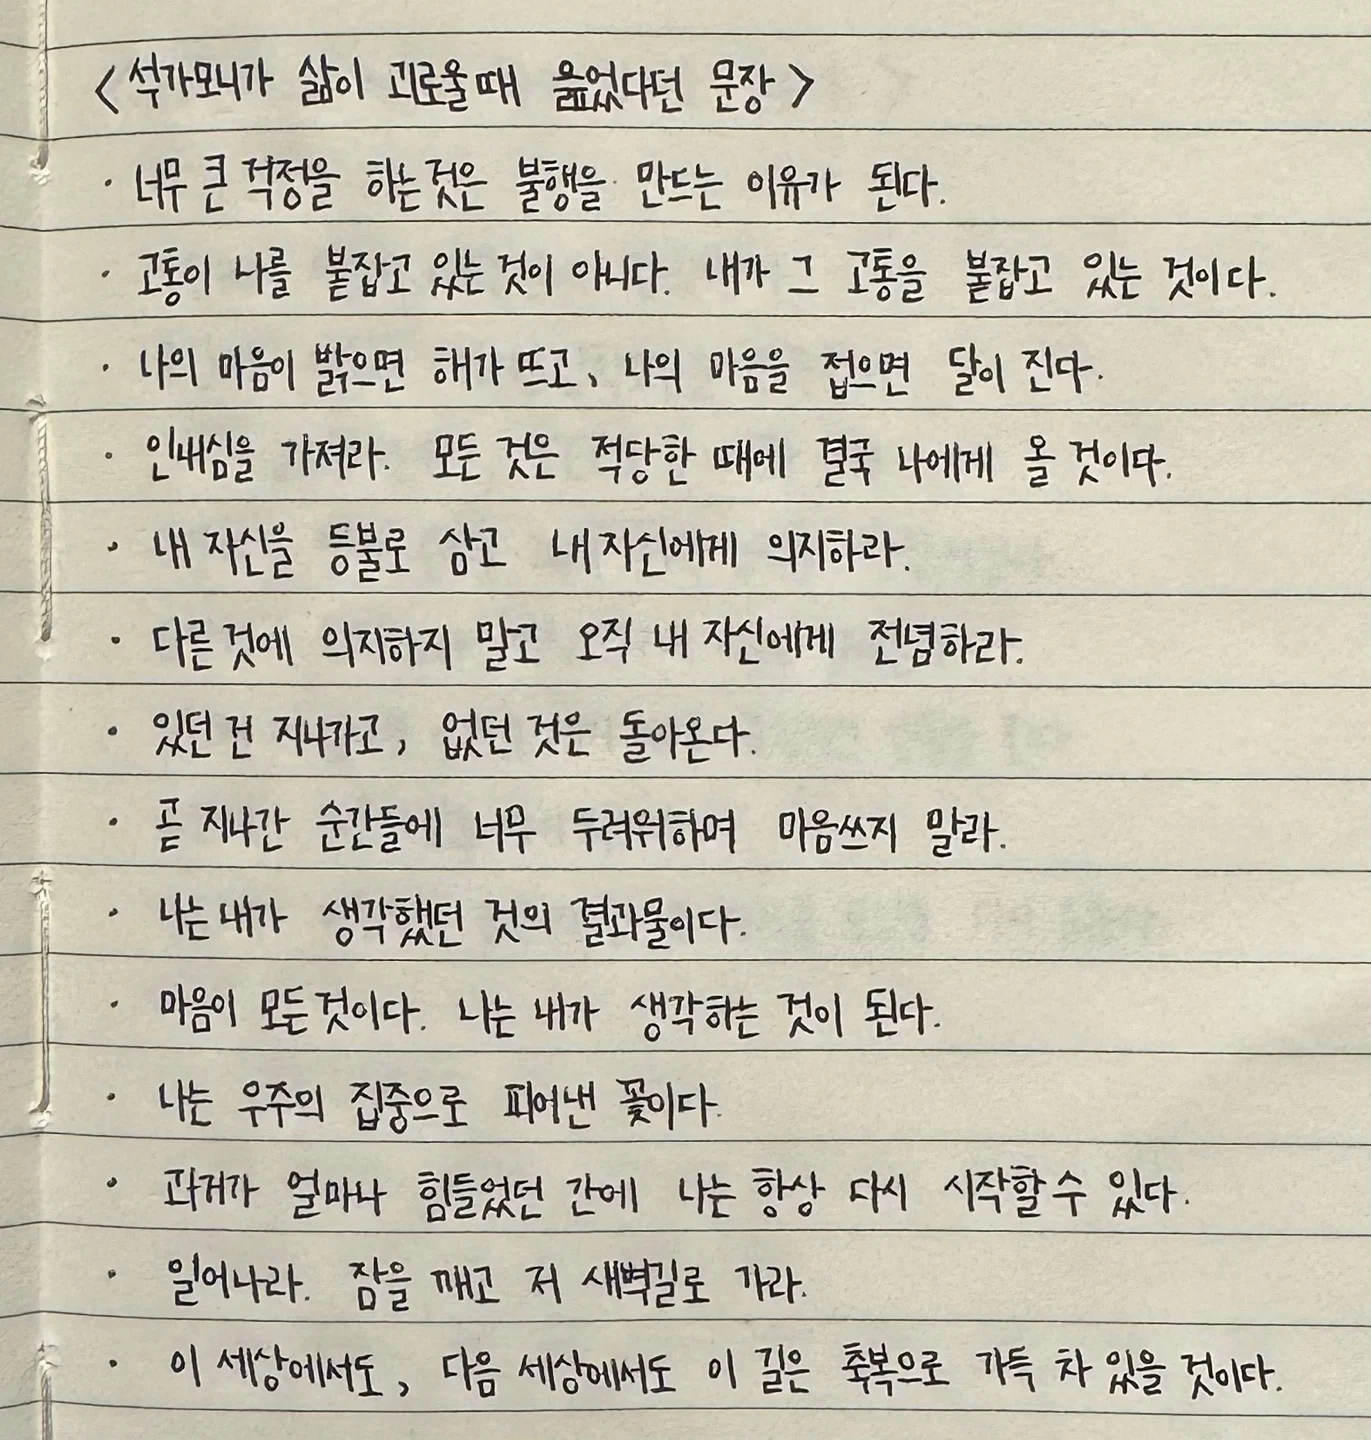 <석가모니가 삶이 괴로울때 읊었다던 문장>
· 너무 큰 걱정을 하는것은 불행을 만드는 이유가 된다.
· 고통이 나를 붙잡고 있는 것이 아니다. 내가 그 고통을 붙잡고 있는 것이다.
· 나의 마음이 밝으면 해가 뜨고, 나의 마음을 접으면 달이 진다.
· 인내심을 가져라. 모든 것은 적당한 때에 결국 나에게 올 것이다.
· 내 자신을 등불로 삼고 내 자신에게 의지하라.
· 다른 것에 의지하지 말고 오직 내 자신에게 전념하라.
· 있던 건 지나가고, 없던 것은 돌아온다.
· 곧 지나간 순간들에 너무 두려워하며 마음쓰지 말라.
· 나는 내가 생각했던 것의 결과물이다.
· 마음이 모든것이다. 나는 내가 생각하는 것이 된다.
· 나는 우주의 집중으로 피어낸 꽃이다.
· 과거가 얼마나 힘들었던 간에 나는 항상 다시 시작할 수 있다.
· 일어나라. 잠을 깨고 저 새벽길로 가라.
· 이 세상에서도, 다음 세상에서도 이 길은 축복으로 가득 차 있을 것이다.